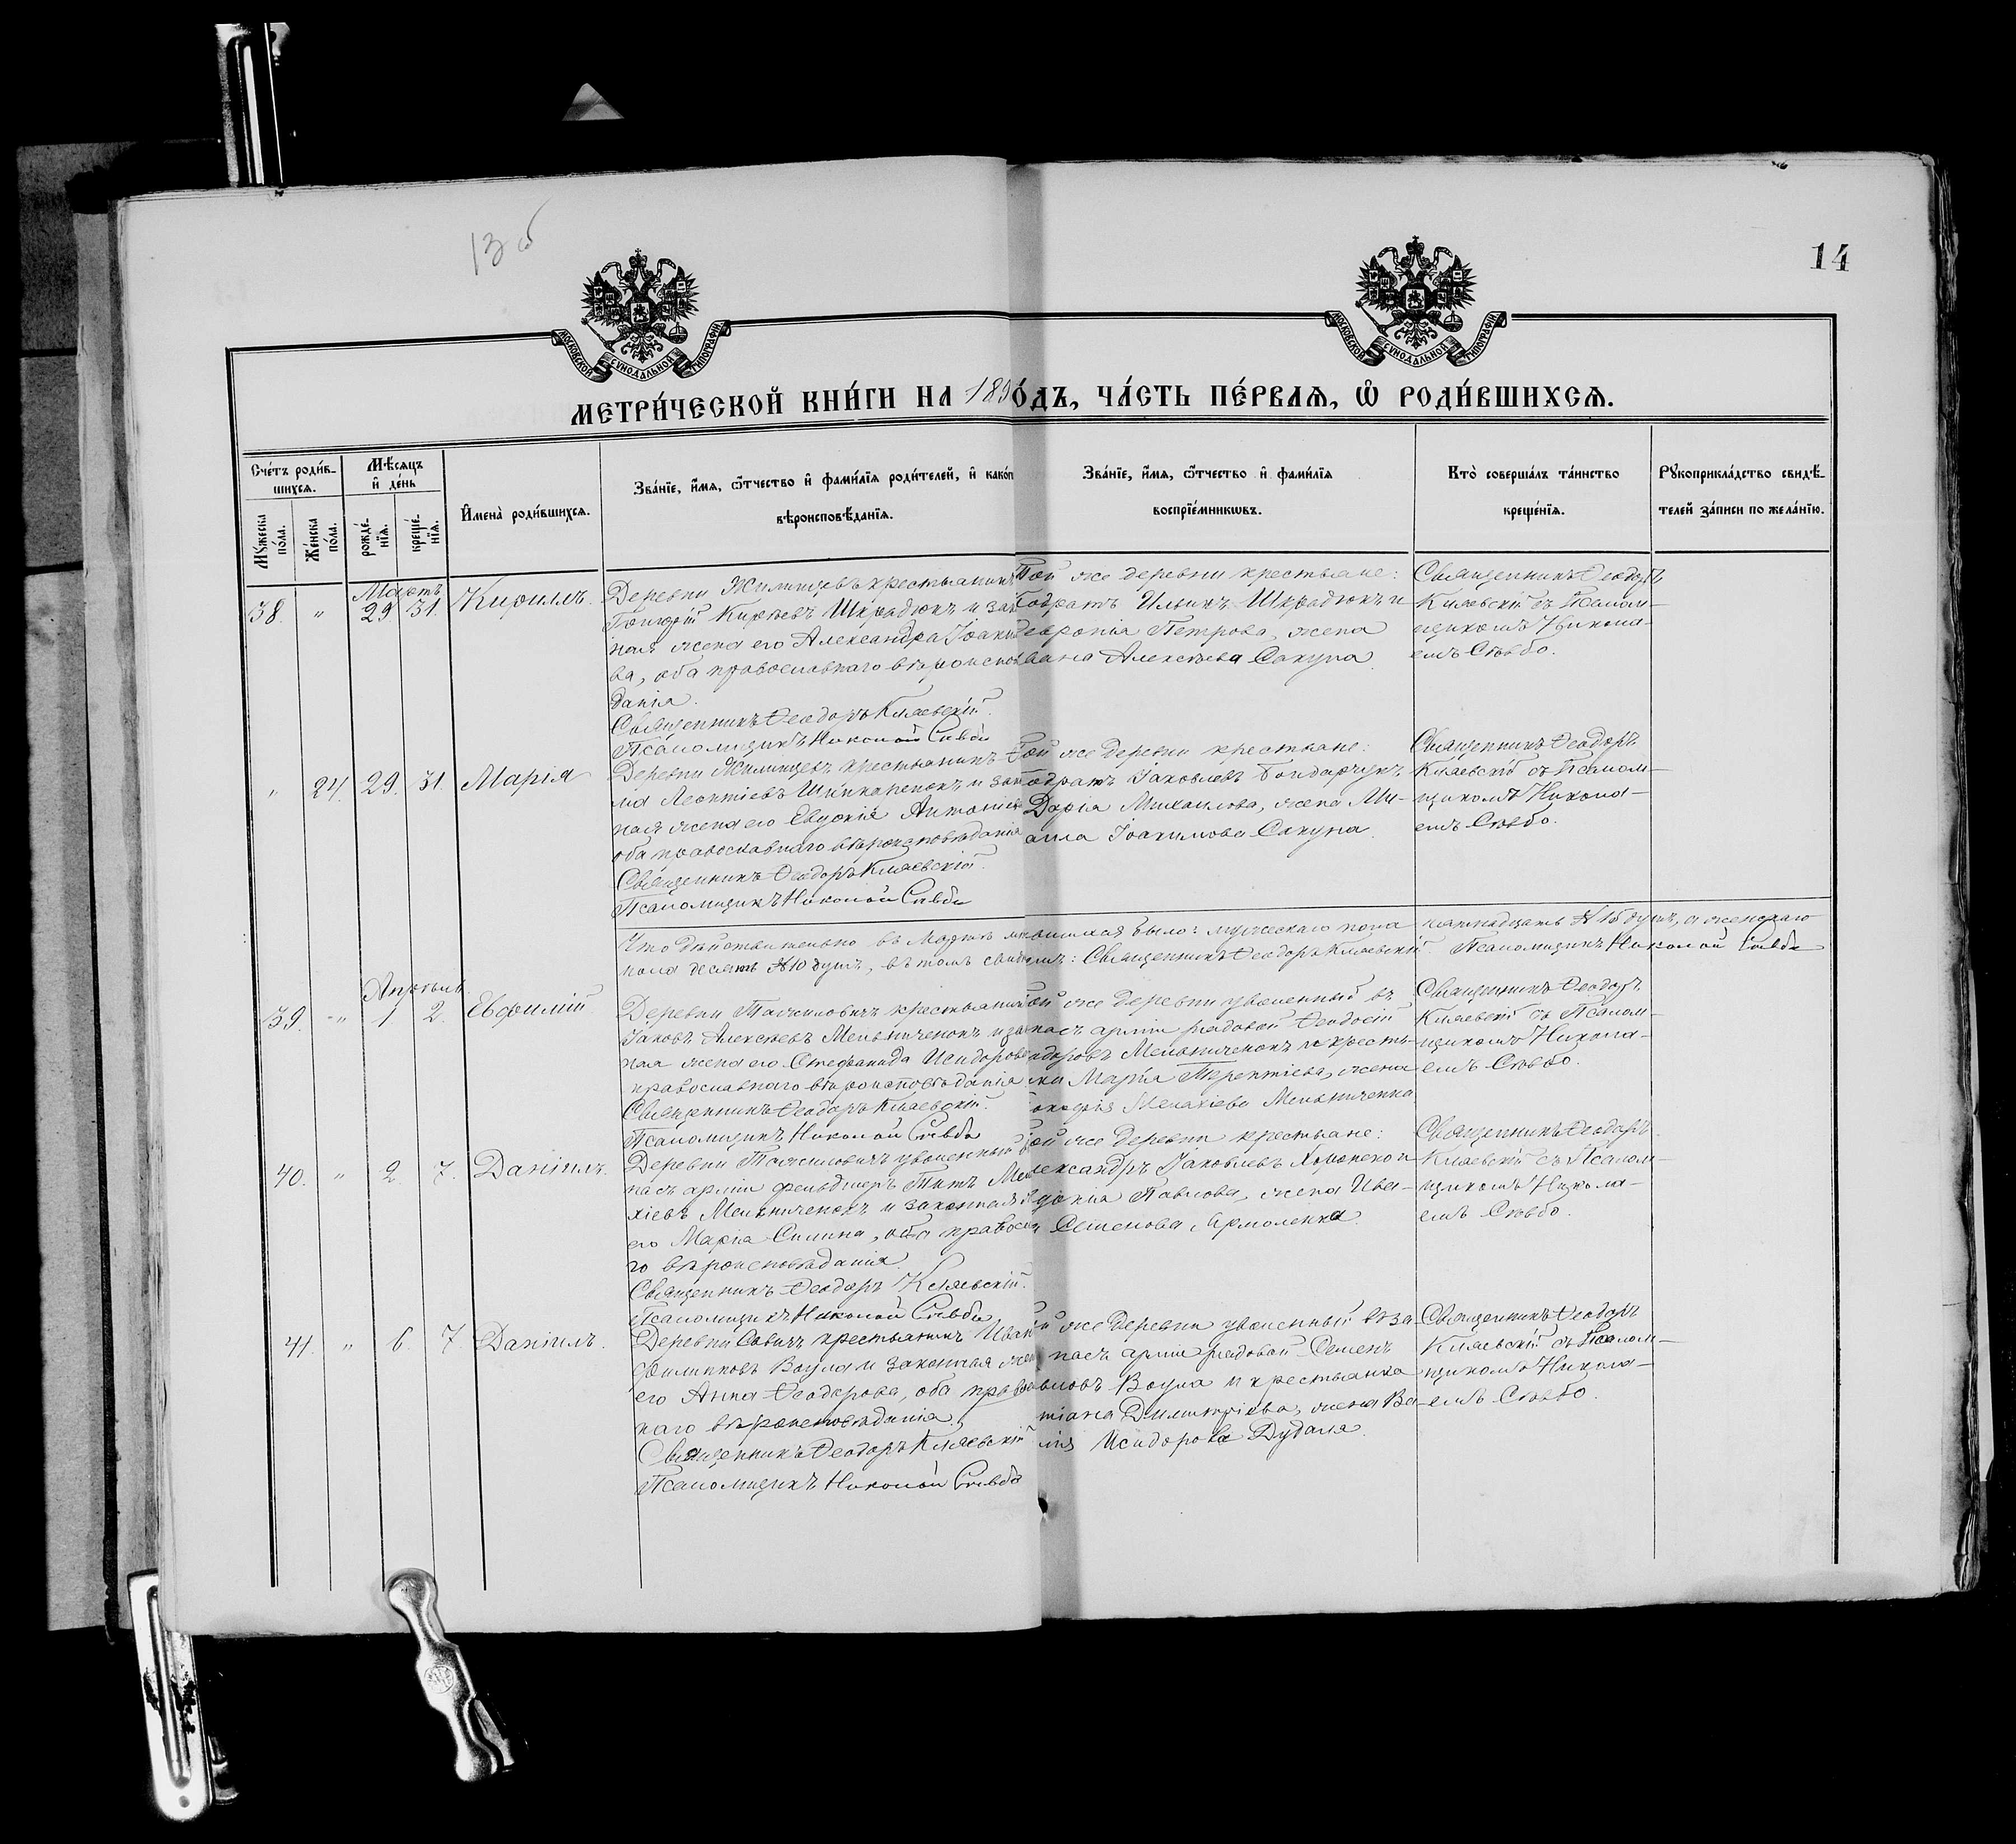 13 об
14
МОСКОВСКОЙ СѴНОДАЛЬНОЙ ТИПОГРАФІИ
МОСКОВСКОЙ СѴНОДАЛЬНОЙ ТИПОГРАФІИ
МЕТРИ́ЧЕСКОЙ КНИ́ГИ НА 189 О́ДЪ, ЧА́СТЬ ПЕ́РВАѦ, Ѡ҆ РОДИ́ВШИХСѦ.
Сче́тъ роди́в-
шихсѧ.
Мꙋжеска по́ла.
Же́нска по́ла.
Мѣ́сѧцъ и҆ де́нь
рожде́-нїѧ.
креще́-нїѧ.
И҆мена̀ роди́вшихсѧ.
Зва́нїе, и҆́мѧ, ѻ҆́тчество и҆ фами́лїѧ роди́телей, и҆ како́г
вѣроисповѣ́данїѧ.
Зва́нїе, и҆́мѧ, ѻ҆́тчество и҆ фами́лїѧ
воспрїе́мникѡвъ.
Кто̀ соверша́лъ та́инство
креще́нїѧ.
Рꙋкоприкла́дство свидѣ́-
телей за́писи по жела́нїю.
Мартъ
38. " 29 31. Кириллъ.
Деревни Жилинцевъ крестьянинъ
Шкрадюкъ и зак
ная жена его Александра Іоаки
ва, оба православнаго вѣроиспов
данія.
Священникъ Ѳеодоръ Княевскій.
Псаломщикъ Николай Сѣвбо
Той же деревни крестьяне:
одратъ Ильинъ Шкрадюкъ и
евронія Петрова, жена
вана Алексѣева Сакуна.
Священникъ Ѳеодоръ
Княевскій съ Псалом-
щикомъ Никола-
емъ Сѣвбо.
" 24. 29. 31. Марія
Деревни Жилинцевъ крестьянинъ
ма Леонтіевъ и зак
ная жена его Евдокія Антоніев
оба православнаго вѣроисповѣданія
Священникъ Ѳеодоръ Княевскій.
Псаломщикъ Николай Сѣвбо
ой же деревни крестьяне:
одратъ Іаковлевъ Бондарчукъ
Дарія Михаилова, жена Ми-
аила Іоакимова Сакуна.
Священникъ Ѳеодоръ
Княевскій съ Псалом-
щикомъ Никола-
емъ Сѣвбо.
Что дѣйствительно въ Мартѣ м вшихся было: мужескаго пола пятнадцать № 15 душъ, а женскаго
пола десять № 10 душъ, въ томъ свид емъ: Священникъ Ѳеодоръ Княевскій. Псаломщикъ Николай Сѣвбо
Апрѣль.
39. " 1 2. Евфимій
Деревни Тажиловичъ крестьянин
Іаковъ Алексѣевъ Мельниченокъ и зако
ная жена его Стефанида Исидоров
православнаго вѣроисповѣданія
Священникъ Ѳеодоръ Княевскій.
Псаломщикъ Николай Сѣвбо
ой же деревни уволенный въ
пасъ арміи рядовой Ѳеодосій
идоровъ Мельниченокъ и кресть-
нка Марія Терентіева, жена
Малахіева Мельниченка
Священникъ Ѳеодоръ
Княевскій съ Псалом-
щикомъ Никола-
емъ Сѣвбо.
40. " 2. 7. Даніилъ.
Деревни Тажиловичъ уволенный в
пасъ арміи фельдшеръ Титъ Мала
хіевъ Мельниченокъ и законная ж
его Марія Силина, оба правосл
го вѣроисповѣданія.
Священникъ Ѳеодоръ Княевскій.
Псаломщикъ Николай Сѣвбо
ой же деревни крестьяне:
лександръ Іаковлевъ Хоменокъ и
вдокія Павлова, жена Ива-
Семенова Ярмоленка.
Священникъ Ѳеодоръ
Княевскій съ Псалом-
щикомъ Никола-
емъ Сѣвбо.
41. " 6. 7 Даніилъ.
Деревни Савичъ крестьянинъ Иван
Филиповъ Воула и законная жен
его Анна Ѳеодорова, оба правосл
наго вѣроисповѣданія.
Священникъ Ѳеодоръ Княевскій
Псаломщикъ Николай Сѣвбо
й же деревни уволенный въ за
пасъ арміи рядовой Семенъ
вловъ Воула и крестьянка
тіана Димитріева, жена Ва
лія Исидорова Дудаля.
Священникъ Ѳеодоръ
Княевскій съ Псалом-
щикомъ Никола-
емъ Сѣвбо.